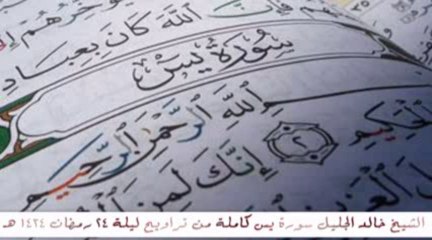 ؤخرهم إ
فَإِنَّ ٱللَّهَ كَانَ بِعِبَادِ
سُورَةُ يسٓ
ٱللَّهِ ٱلرَّحْمَٰنِ ٱلرَّحِيمِ
ٱلْحَكِيمِ ٢ إِنَّكَ لَمِنَ
الشيخ خالد الجليل سورة يس كاملة من تراويح ليلة ٢٤ رمضان ١٤٢٤ هـ